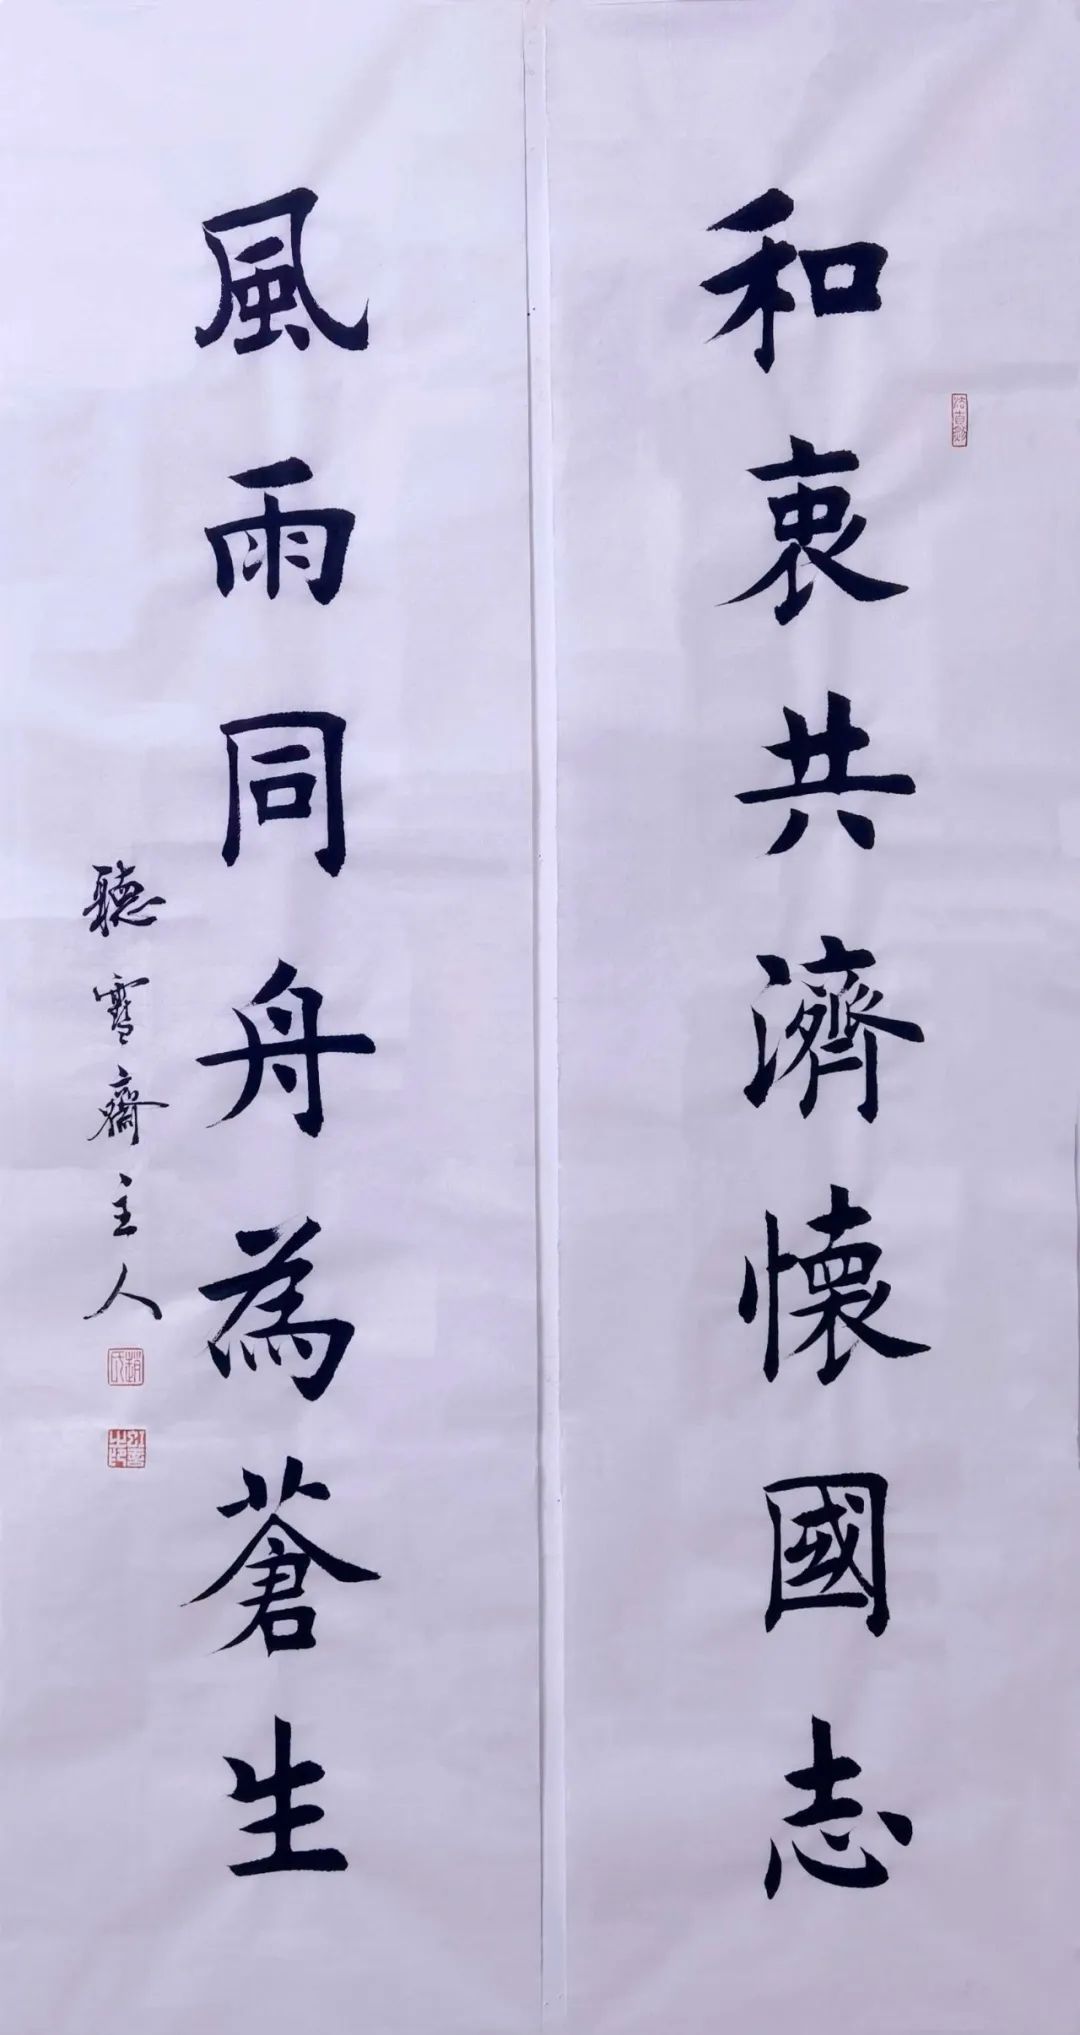 和衷共濟懷國志
風雨同舟為蒼生
聽雪齋主人